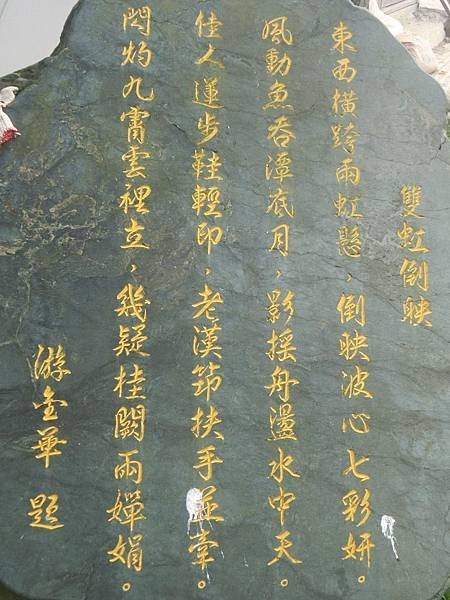 雙虹倒映
東西橫跨兩虹懸，倒映波心七彩妍。
風動魚吞潭底月，影搖舟盪水中天。
佳人蓮步鞋輕印，老漢筇扶手並牽。
閃灼九霄雲裡立，幾疑桂闕兩嬋娟。
游金華 題